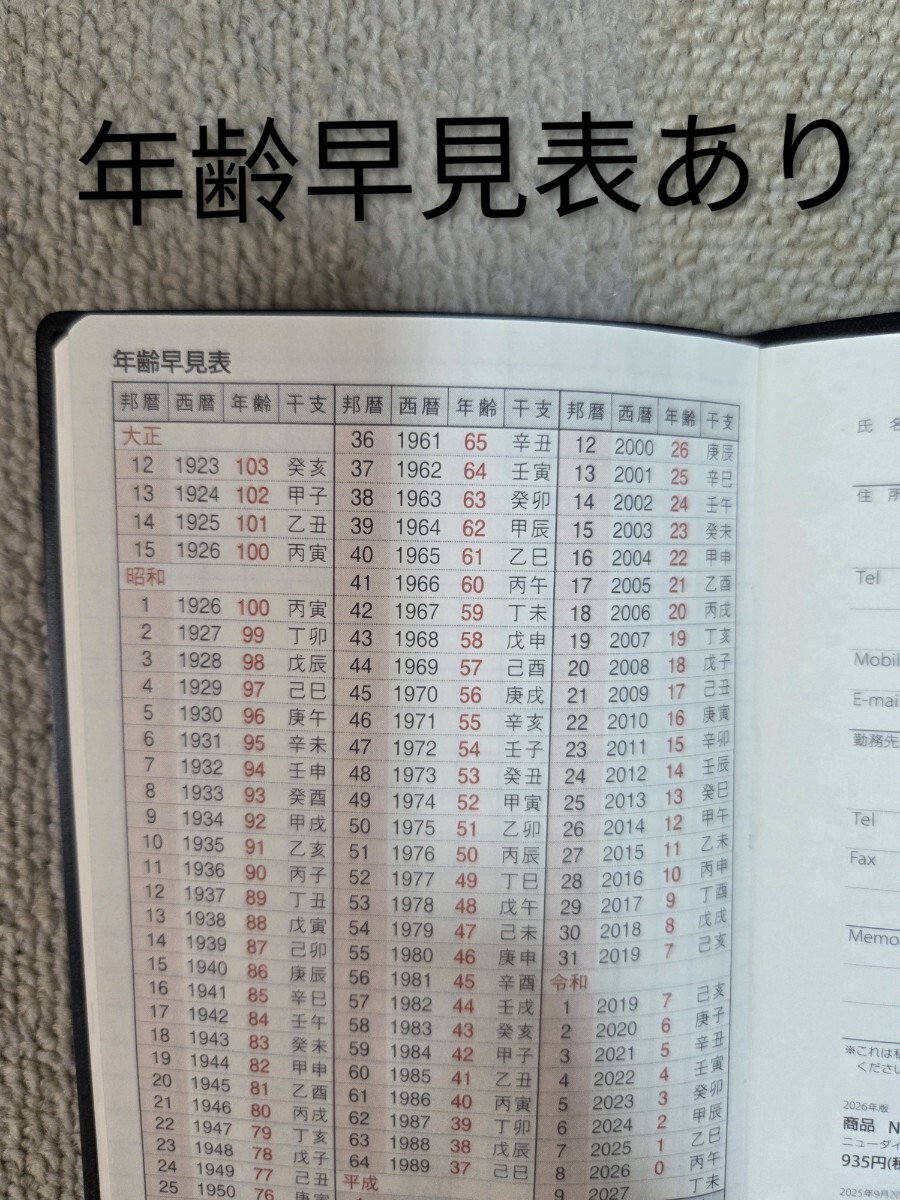 年齢早見表あり
年齢早見表
邦暦 西暦 年齢 干支
大正
12 1923 103 癸亥
13 1924 102 甲子
14 1925 101 乙丑
15 1926 100 丙寅
昭和
1 1926 100 丙寅
2 1927 99 丁卯
3 1928 98 戊辰
4 1929 97 己巳
5 1930 96 庚午
6 1931 95 辛未
7 1932 94 壬申
8 1933 93 癸酉
9 1934 92 甲戌
10 1935 91 乙亥
11 1936 90 丙子
12 1937 89 丁丑
13 1938 88 戊寅
14 1939 87 己卯
15 1940 86 庚辰
16 1941 85 辛巳
17 1942 84 壬午
18 1943 83 癸未
19 1944 82 甲申
20 1945 81 乙酉
21 1946 80 丙戌
22 1947 79 丁亥
23 1948 78 戊子
24 1949 77 己丑
25 1950 76 庚寅
邦暦 西暦 年齢 干支
36 1961 65 辛丑
37 1962 64 壬寅
38 1963 63 癸卯
39 1964 62 甲辰
40 1965 61 乙巳
41 1966 60 丙午
42 1967 59 丁未
43 1968 58 戊申
44 1969 57 己酉
45 1970 56 庚戌
46 1971 55 辛亥
47 1972 54 壬子
48 1973 53 癸丑
49 1974 52 甲寅
50 1975 51 乙卯
51 1976 50 丙辰
52 1977 49 丁巳
53 1978 48 戊午
54 1979 47 己未
55 1980 46 庚申
56 1981 45 辛酉
57 1982 44 壬戌
58 1983 43 癸亥
59 1984 42 甲子
60 1985 41 乙丑
61 1986 40 丙寅
62 1987 39 丁卯
63 1988 38 戊辰
64 1989 37 己巳
平成
邦暦 西暦 年齢 干支
12 2000 26 庚辰
13 2001 25 辛巳
14 2002 24 壬午
15 2003 23 癸未
16 2004 22 甲申
17 2005 21 乙酉
18 2006 20 丙戌
19 2007 19 丁亥
20 2008 18 戊子
21 2009 17 己丑
22 2010 16 庚寅
23 2011 15 辛卯
24 2012 14 壬辰
25 2013 13 癸巳
26 2014 12 甲午
27 2015 11 乙未
28 2016 10 丙申
29 2017 9 丁酉
30 2018 8 戊戌
31 2019 7 己亥
令和
1 2019 7 己亥
2 2020 6 庚子
3 2021 5 辛丑
4 2022 4 壬寅
5 2023 3 癸卯
6 2024 2 甲辰
7 2025 1 乙巳
8 2026 0 丙午
9 2027 丁未
氏 名
住 所
Tel
Mobil
E-mai
勤務先
Tel
Fax
Memo
※これは
くださ
2026年版
商品 N
ニューダイ
935円(税
2025年9月20